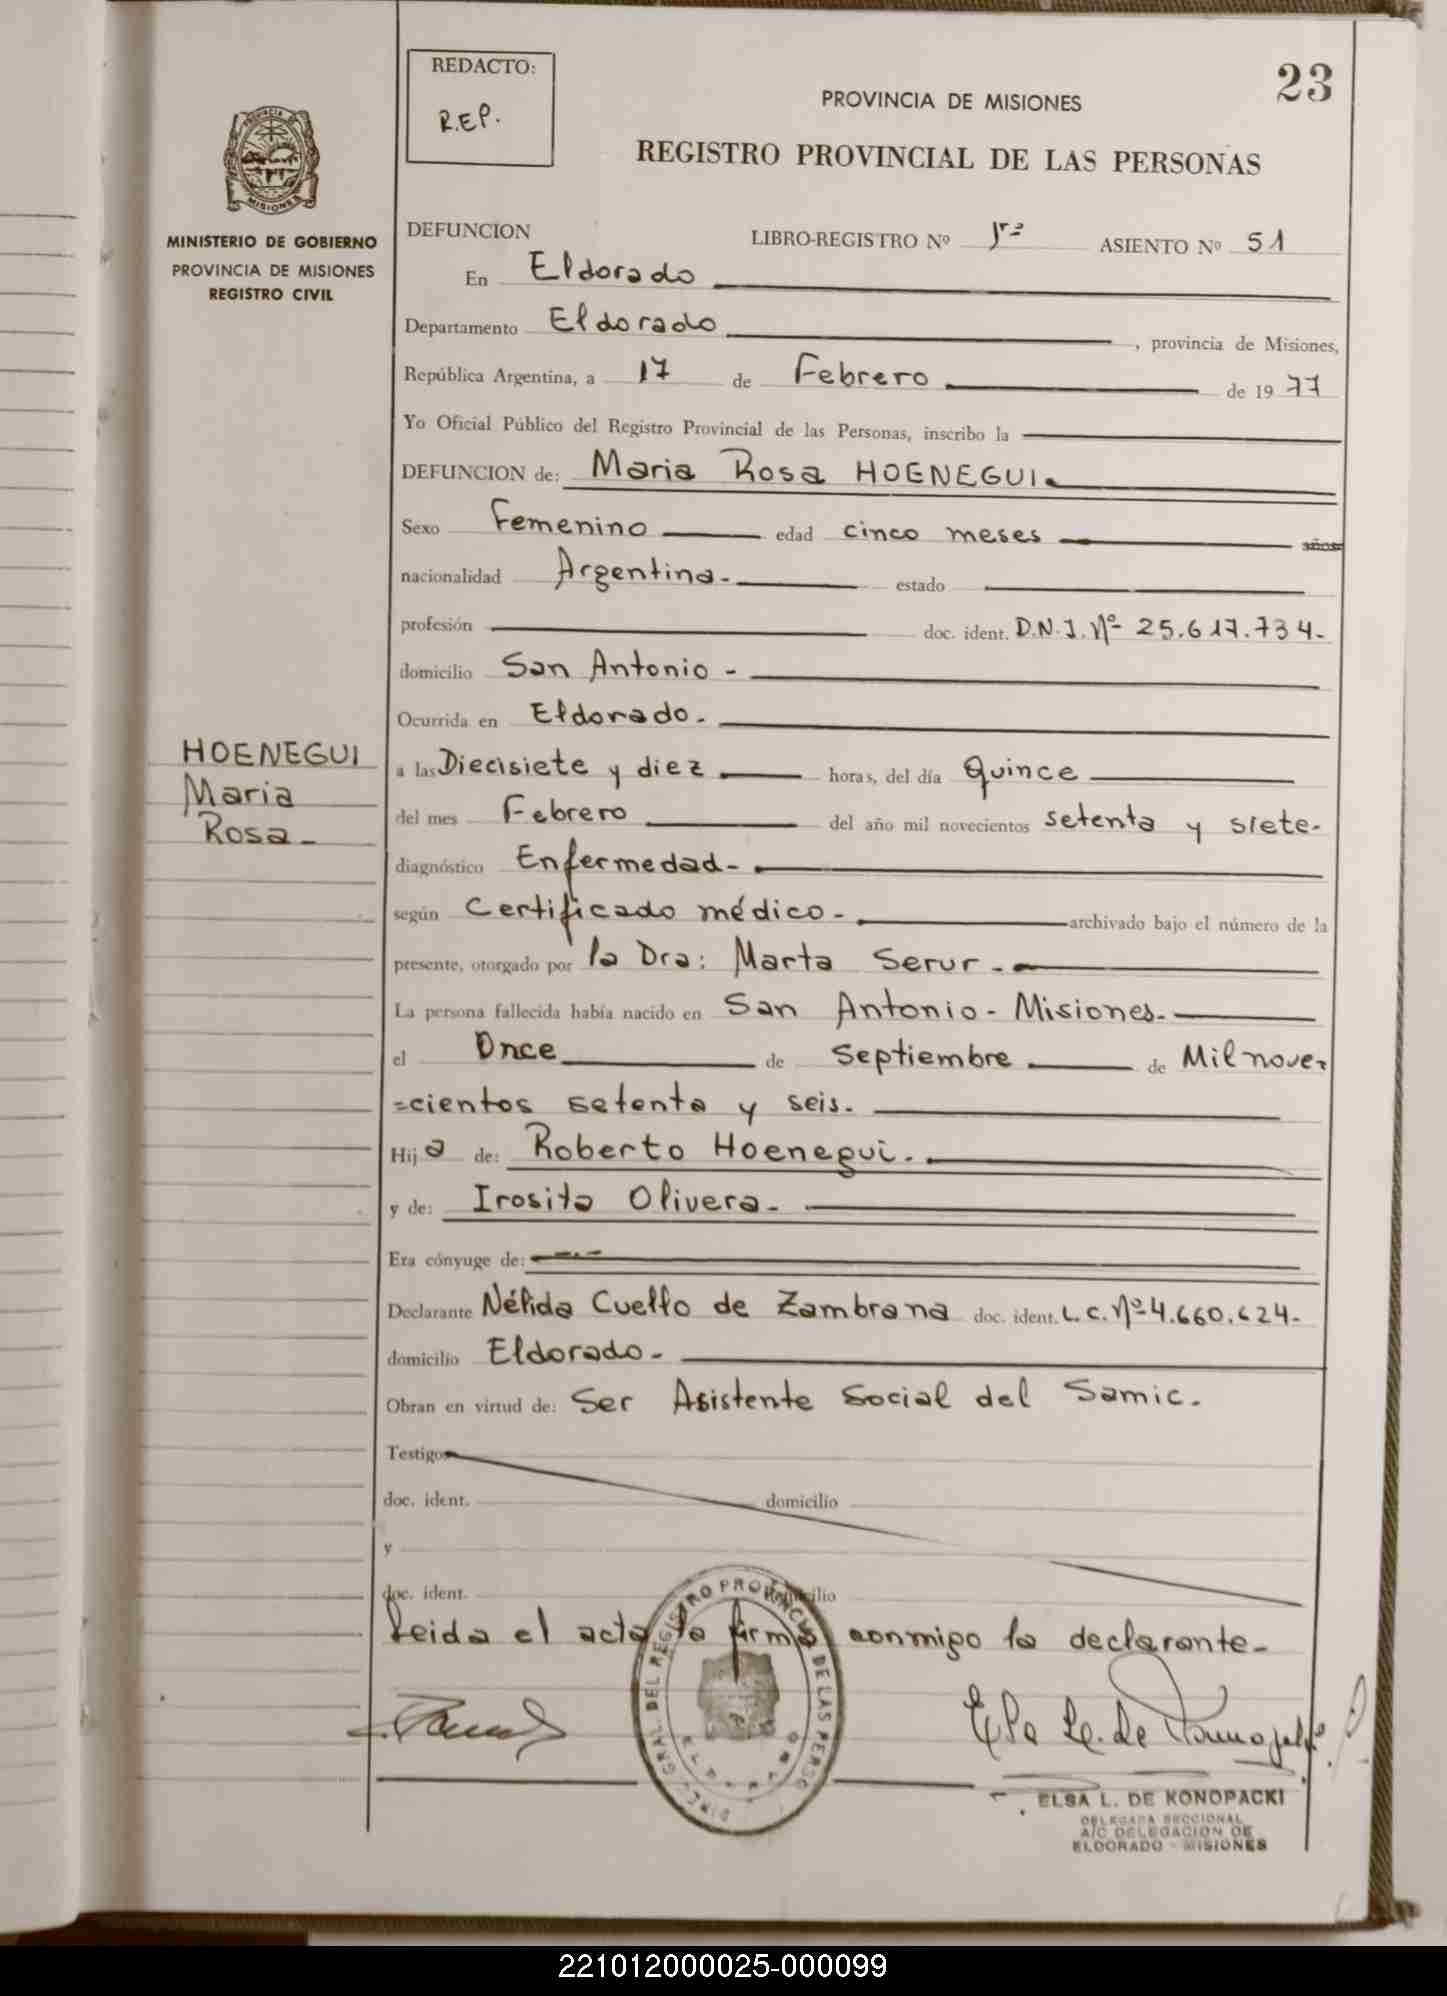 23
REDACTO:
R.E.P.
PROVINCIA DE MISIONES
REGISTRO PROVINCIAL DE LAS PERSONAS
PROVINCIA DE
MISIONES
MINISTERIO DE GOBIERNO
PROVINCIA DE MISIONES
REGISTRO CIVIL
DEFUNCION LIBRO-REGISTRO Nº 1rº ASIENTO Nº 51
En Eldorado
Departamento Eldorado , provincia de Misiones,
República Argentina, a 17 de Febrero de 1977
Yo Oficial Público del Registro Provincial de las Personas, inscribo la
DEFUNCION de: Maria Rosa HOENEGUI.
Sexo Femenino edad cinco meses años
nacionalidad Argentina.- estado
profesión doc. ident. D.N.I. Nº 25.617.734.
domicilio San Antonio -
Ocurrida en Eldorado.
HOENEGUI
Maria
Rosa -
a las Diecisiete y diez horas, del día Quince
del mes Febrero del año mil novecientos setenta y siete.
diagnóstico Enfermedad-
según Certificado médico - archivado bajo el número de la
presente, otorgado por la Dra: Marta Serur.
La persona fallecida había nacido en San Antonio - Misiones.
el Once de Septiembre de Mil nove-
=cientos setenta y seis.
Hija de: Roberto Hoenegui.
y de: Irosita Olivera.
Era cónyuge de: -.-
Declarante Nélida Cuello de Zambrana doc. ident. L.C. Nº 4.660.624.
domicilio Eldorado -
Obran en virtud de: Ser Asistente Social del Samic.
Testigos
doc. ident. domicilio
y
doc. ident. domicilio
Leida el acta la firma conmigo la declarante-
DIREC. GRAL. DEL REGISTRO PROVINCIAL DE LAS PERSO
ELDORADO
ELSA L. DE KONOPACKI
DELEGADA SECCIONAL
A/C DELEGACION DE
ELDORADO - MISIONES
221012000025-000099